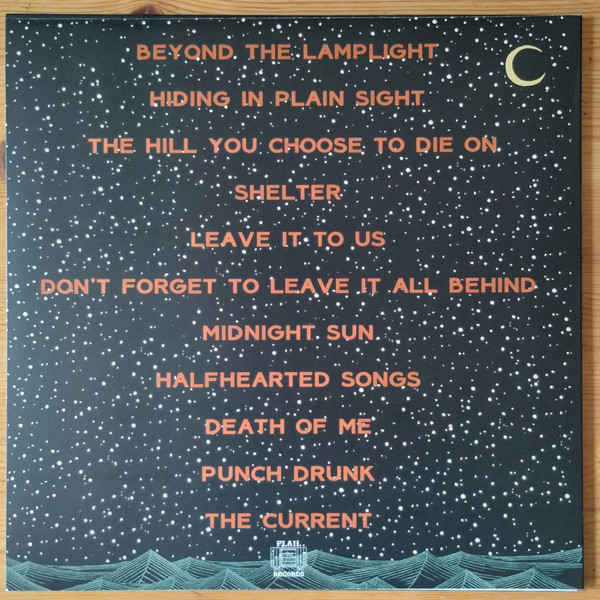 BEYOND THE LAMPLIGHT
HIDING IN PLAIN SIGHT
THE HILL YOU CHOOSE TO DIE ON
SHELTER
LEAVE IT TO US
DON'T FORGET TO LEAVE IT ALL BEHIND
MIDNIGHT SUN
HALFHEARTED SONGS
DEATH OF ME
PUNCH DRUNK
THE CURRENT
FLAIL
RECORDS